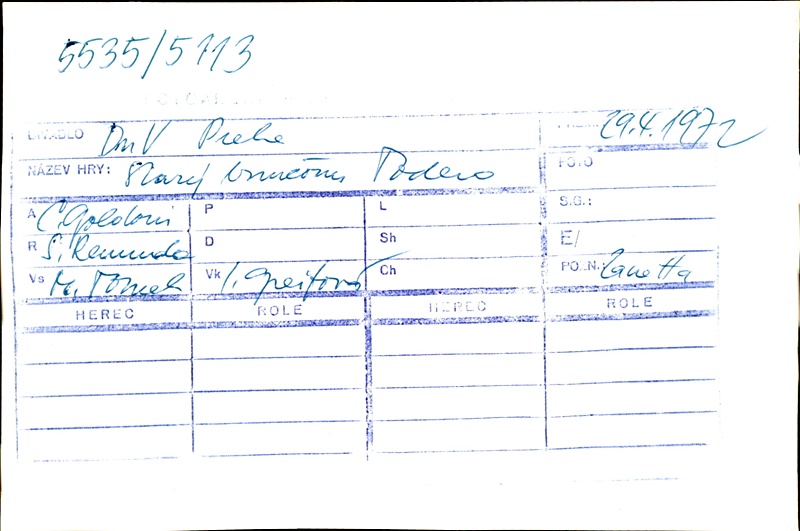 5535/5113
DIVADLO DnV Praha 29.4.1972
NÁZEV HRY: Starý bručoun Todero FOTO
A C. Goldoni P L S.G.:
R S. Remunda D Sh E/
Vs Vk I. Greifová Ch POZN. Zanetta
HEREC ROLE HEREC ROLE